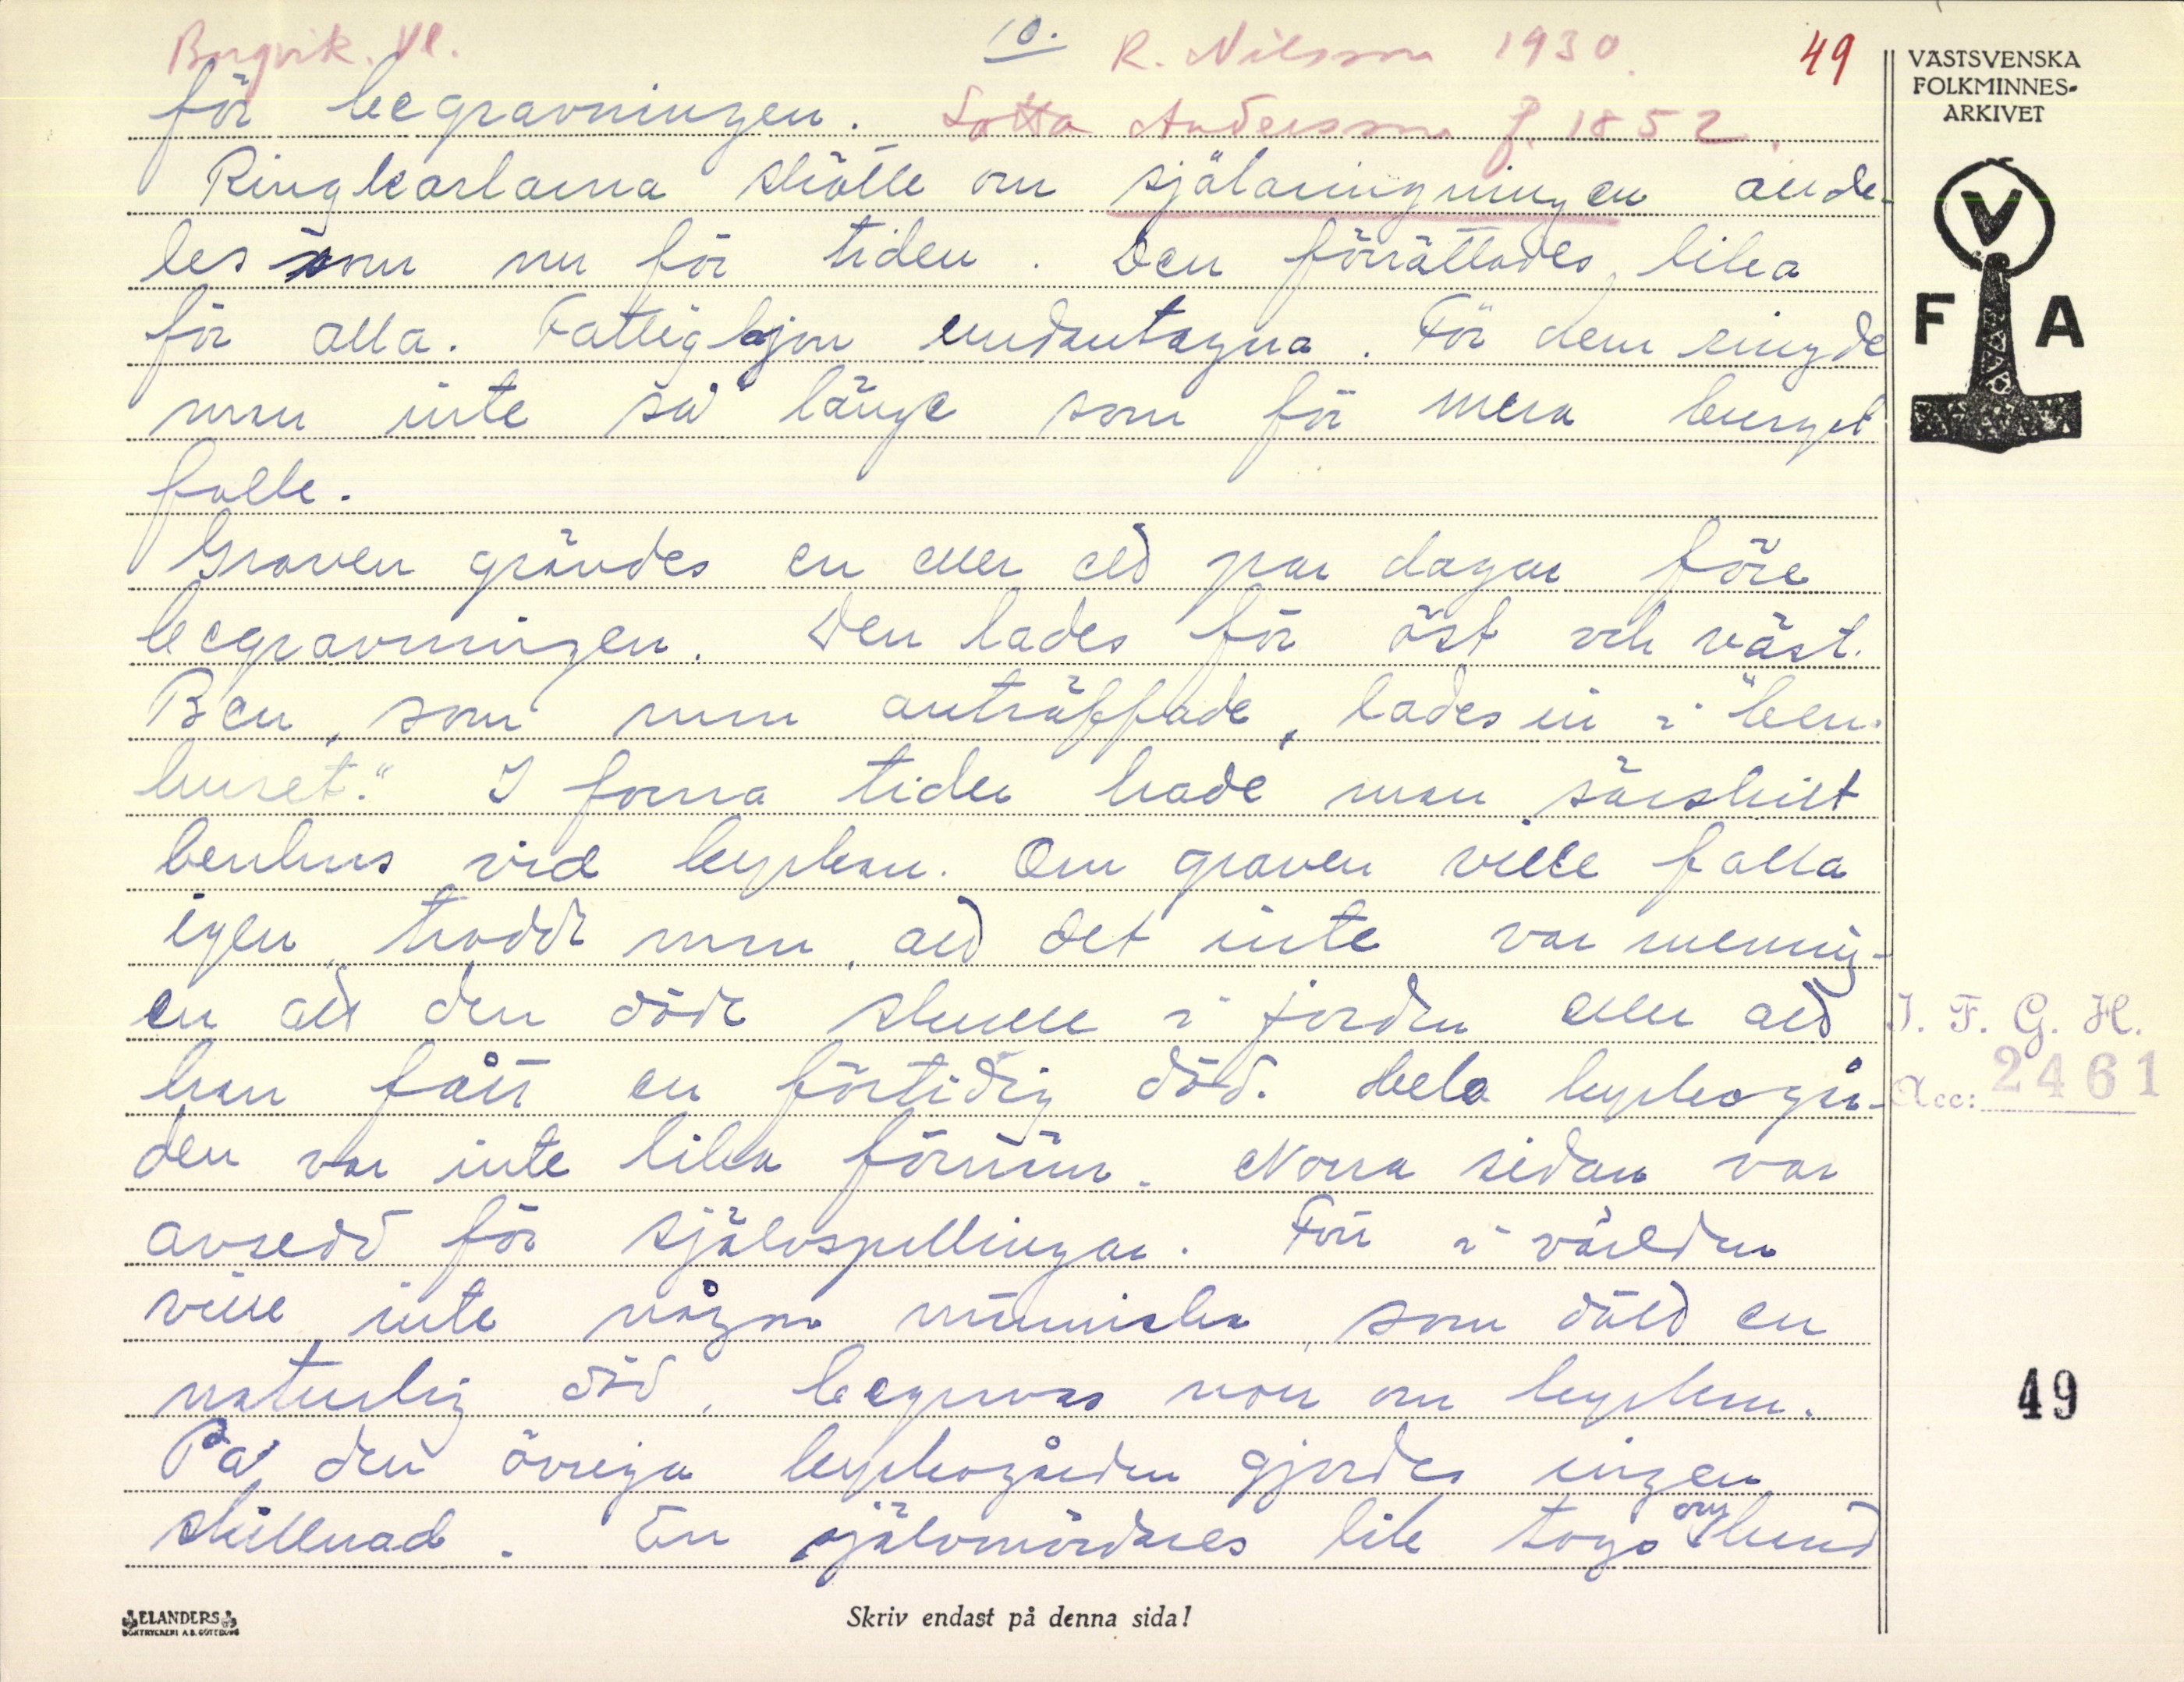 Borgvik. Vl. 10. R. Nilsson 1930. 49
för begravningen. Lotta Andersson f. 1852.
Ringkarlarna skötte om själaringningen allde-
les som nu för tiden. Den förrättades lika
för alla. Fattighjon undantagna. För dem ringde
man inte så länge som för mera burget
folk.
Graven grävdes en eller ett par dagar före
begravningen. Den lades för öst och väst.
Ben, som man anträffade, lades in i "ben-
huset." I forna tider hade man särskilt
benhus vid kyrkan. Om graven ville falla
igen, trodde man, att det inte var mening-
en att den döde skulle i jorden eller att
han fått en förtidig död. Hela kyrkogår-
den var inte lika förnäm. Norra sidan var
avsedd för självspillingar. Förr i världen
ville inte någon människa, som dött en
naturlig död, begravas norr om kyrkan.
På den övriga kyrkogården gjordes ingen
skillnad. En självmördares lik togs om hand
VÄSTSVENSKA
FOLKMINNES-
ARKIVET
V
F A
I. F. G. H.
Acc: 2461
49
ELANDERS
BOKTRYCKERI A.B. GÖTEBORG
Skriv endast på denna sida!